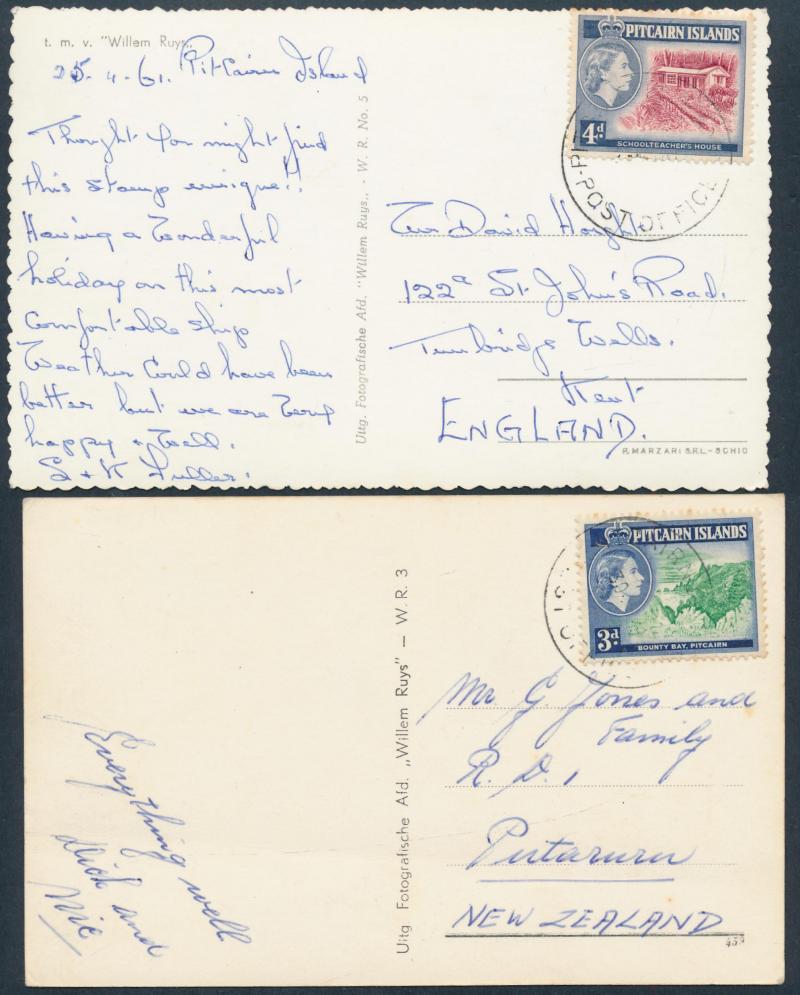 t. m. v. "Willem Ruys„
25-4-61. Pitcairn Island
Thought you might find
this stamp unique!!
Having a wonderful
holiday on this most
comfortable ship
Weather could have been
better but we are very
happy & well.
S & K Fuller.
Uitg. Fotografische Afd. "Willem Ruys„ - W. R. No. 5
PITCAIRN ISLANDS
4d
SCHOOLTEACHER'S HOUSE
POST OFFICE
David
122a St. John's Road.
Tunbridge Wells.
Kent
ENGLAND.
P. MARZARI S.R.L.-SCHIO
PITCAIRN ISLANDS
3d
BOUNTY BAY, PITCAIRN
Uitg Fotografische Afd. „Willem Ruys" — W. R. 3
Mr G Jones and
Family
R. D. 1
Putaruru
NEW ZEALAND
Everything well
and